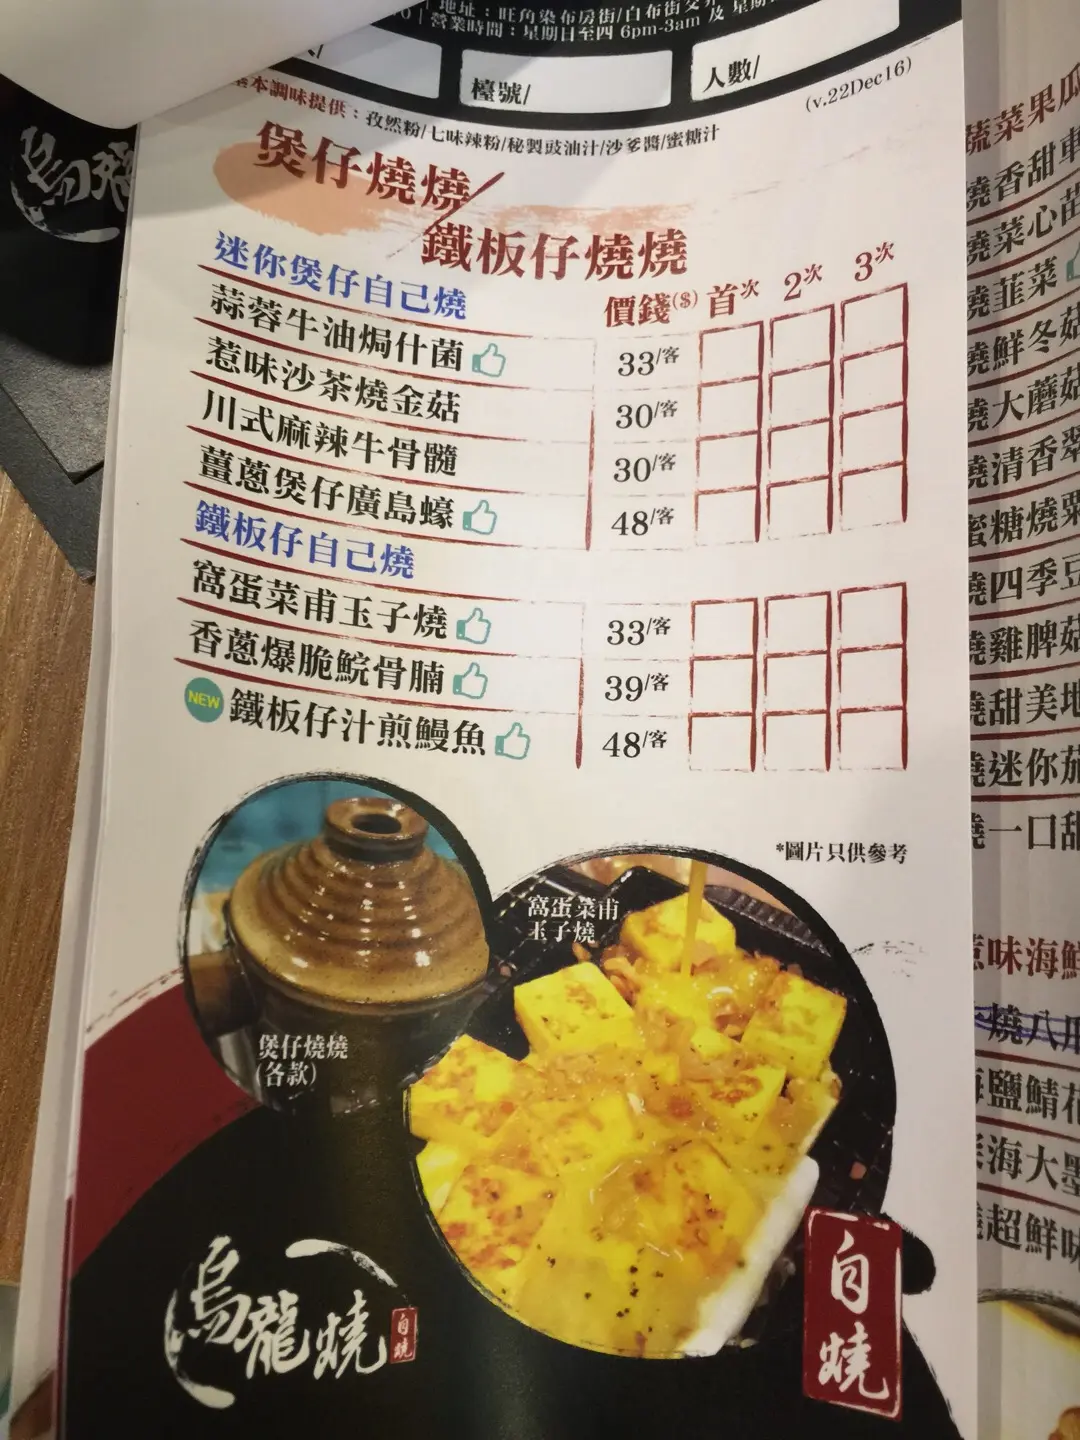 地址：旺角染布房街/白布街交界
營業時間：星期日至四 6pm-3am 及 星期
檯號/
人數/
(v.22Dec16)
基本調味提供：孜然粉/七味辣粉/秘製豉油汁/沙爹醬/蜜糖汁
煲仔燒燒/
鐵板仔燒燒
迷你煲仔自己燒
價錢($) 首次 2次 3次
蒜蓉牛油焗什菌 33/客
惹味沙茶燒金菇 30/客
川式麻辣牛骨髓 30/客
薑蔥煲仔廣島蠔 48/客
鐵板仔自己燒
窩蛋菜甫玉子燒 33/客
香蔥爆脆鯇骨腩 39/客
NEW 鐵板仔汁煎鰻魚 48/客
*圖片只供參考
窩蛋菜甫
玉子燒
煲仔燒燒
(各款)
烏龍燒
自燒
自燒
烏龍
蔬菜果瓜
燒香甜
燒菜心苗
燒韮菜
燒鮮冬菇
燒大蘑菇
燒清香
蜜糖燒粟
燒四季豆
燒雞脾菇
燒甜美地
燒迷你茄
燒一口甜
惹味海鮮
燒八爪
海鹽鯖花
海大墨
超鮮味